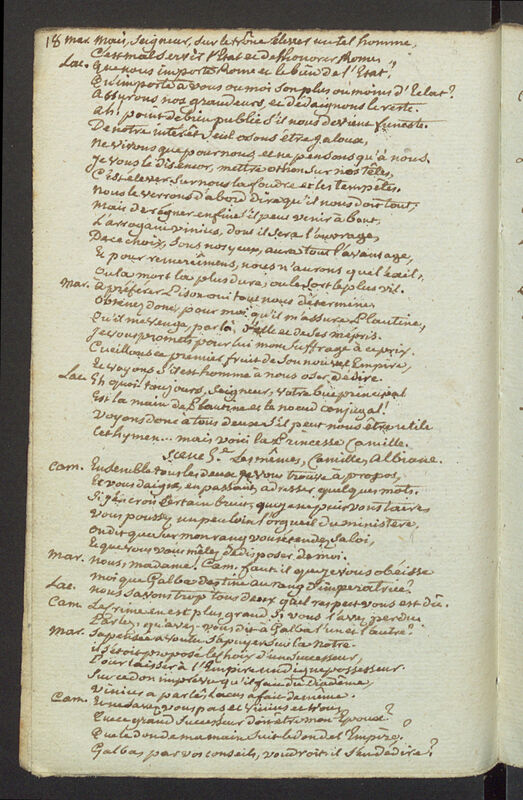 18 Mar. Mais, Seigneur, sur le trône élever un tel homme,
C'est mal servir l'Etat et deshonorer Rome.
Lac. Que nous importe Rome et le bien de l'Etat,
Qu'importe à vous ou moi son plus ou moins d'éclat?
Assurons nos grandeurs, et dédaignons le reste.
Ah! point de bien public s'il nous devient funeste.
De notre intérêt seul osons être jaloux,
Ne vivons que pour nous, et ne pensons qu'à nous.
Je vous le dis encor, mettre Othon sur nos têtes,
C'est élever sur nous la foudre et les tempêtes.
Nous le verrons d'abord dire qu'il nous doit tout;
Mais de régner enfin s'il peut venir à bout,
L'arrogant Vinius, dont il sera l'ouvrage,
De ce choix, sous nos yeux, aura tout l'avantage,
Et pour remercimens, nous n'aurons que l'exil,
Ou la mort la plus dure, ou le sort le plus vil.
Mar. à préférer Pison oui tout nous détermine.
Obtenez donc pour moi qu'il m'assure Plautine,
Qu'il me venge par là d'elle et de ses mépris.
Je vous promets pour lui mon suffrage à ce prix.
Cueillons ce premier fruit de son nouvel Empire,
Et voyons s'il est homme à nous oser dédire.
Lac. Eh quoi! toujours, Seigneur, votre but principal
Est la main de Plautine et le noeud conjugal!
Voyons donc à tous deux s'il peut nous être utile
Cet hymen... mais voici la Princesse Camille.
Scene 5.e Les mêmes, Camille, Albiane.
Cam. Ensemble tous les deux je vous trouve à propos,
Et vous daigne, en passant, adresser quelques mots.
Si j'en crois certain bruit, que je ne puis vous taire
Vous poussez un peu loin l'orgueil du ministère,
On dit que sur mon rang vous étendez sa loi,
Et que vous vous mêlez de disposer de moi.
Mar. Nous, madame? Cam. faut-il que je vous obéisse
Moi que Galba destine au rang d'impératrice?
Lac. Nous savons trop tous deux quel respect vous est dû.
Cam. Le crime en est plus grand si vous l'avez perdu.
Parlez, qu'avez-vous dit à Galba l'un et l'autre?
Mar. Sa pensée a voulu s'appuyer sur la notre.
il s'étoit proposé le choix d'un successeur,
Pour laisser à l'Empire un digne possesseur.
Sur ce don imprévu qu'il fait du diadême,
Vinius a parlé, Lacus a fait de même.
Cam. Et ne savez vous pas et Vinius et vous,
Que ce grand successeur doit être mon Epoux?
Que le don de ma main suit le don de l'Empire?
Galba, par vos conseils, voudroit-il s'en dédire?